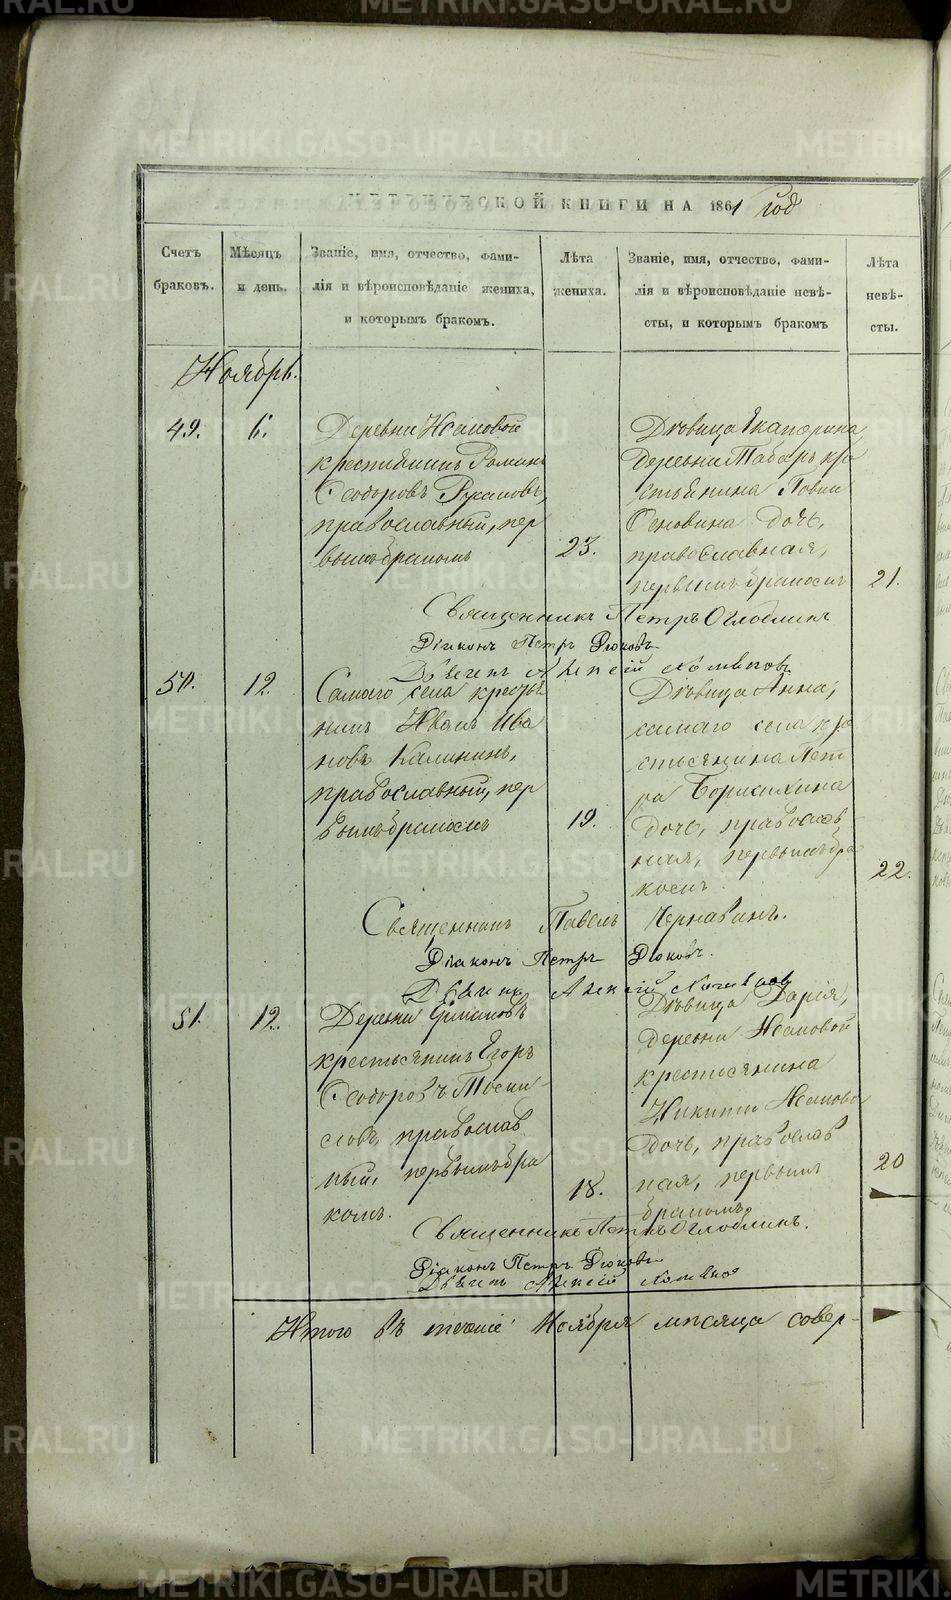 МЕТРИЧЕСКОЙ КНИГИ НА 1861 год
Счетъ браковъ.
Мѣсяцъ и день.
Званіе, имя, отчество, фами-
лія и вѣроисповѣданіе жениха,
и которымъ бракомъ.
Лѣта жениха.
Званіе, имя, отчество, фами-
лія и вѣроисповѣданіе невѣ-
сты, и которымъ бракомъ
Лѣта невѣ-
сты.
Ноябрь.
49. 6.
Деревни Исаковой
крестьянинъ Романъ
Ѳеодоровъ
православный, пер
вымъ бракомъ
23.
Дѣвица Екатерина,
деревни Табаръ кре
стьянина
дочь,
православная,
первымъ бракомъ
21.
Священникъ Петръ Оглоблинъ
Діаконъ Петръ Дюковъ
Дьячекъ Алексій
50. 12.
Самаго села крестья
нинъ Иванъ Ива
новъ Калининъ,
православный, пер
вымъ бракомъ
19.
Дѣвица Анна,
самаго села кре
стьянина Пет
ра Борисихина
дочь, православ
ная, первымъ бра
комъ
22.
Священникъ Павелъ Чернавинъ.
Діаконъ Петръ Дюковъ.
Дьячекъ Алексій
51. 12.
Деревни
крестьянинъ Егоръ
Ѳеодоровъ
православ
ный, первымъ бра
комъ.
18.
Дѣвица Дарія,
деревни Исаковой
крестьянина
Никиты Исакова
дочь, православ
ная, первымъ
бракомъ.
20
Священникъ Петръ Оглоблинъ.
Діаконъ Петръ Дюковъ
Дьячекъ Алексій
Итого въ теченіе Ноября мѣсяца совер-
METRIKI.GASO-URAL.RU